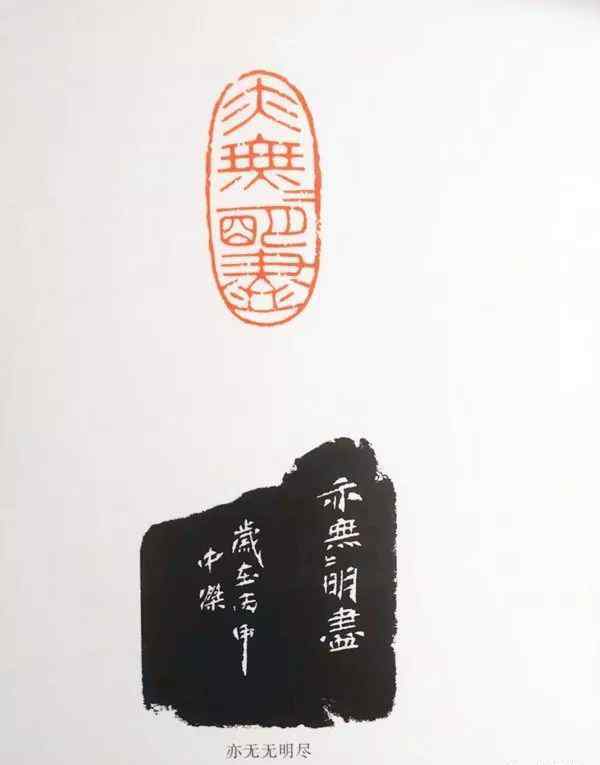 亦無=明盡
亦無〻明盡
歲在丙申
中傑
亦无无明尽